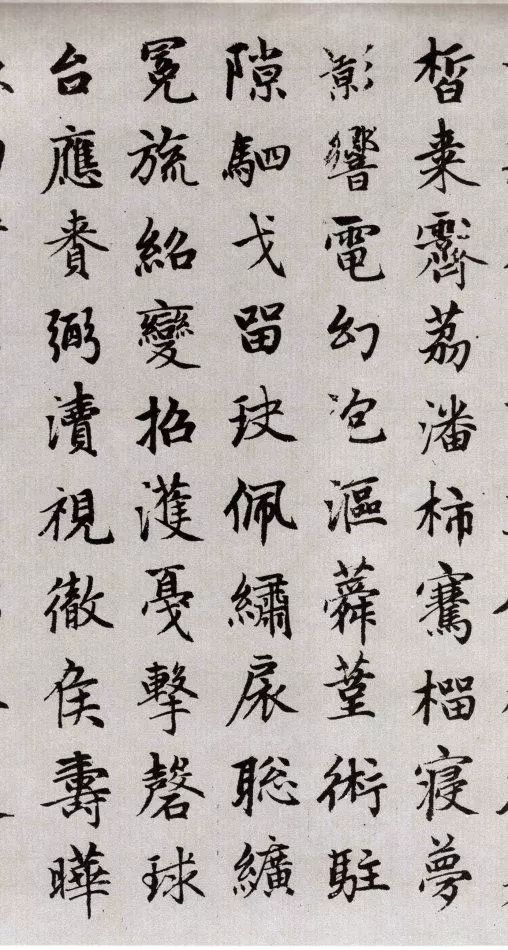 皙棗霽荔潘柿騫榴寢夢
影響電幻泡漚蕣堇術駐
隙駟戈留玦佩繡扆聡纊
冕旒紹變招濩戛擊磬球
台應賚弼瀆視徹侯壽曄